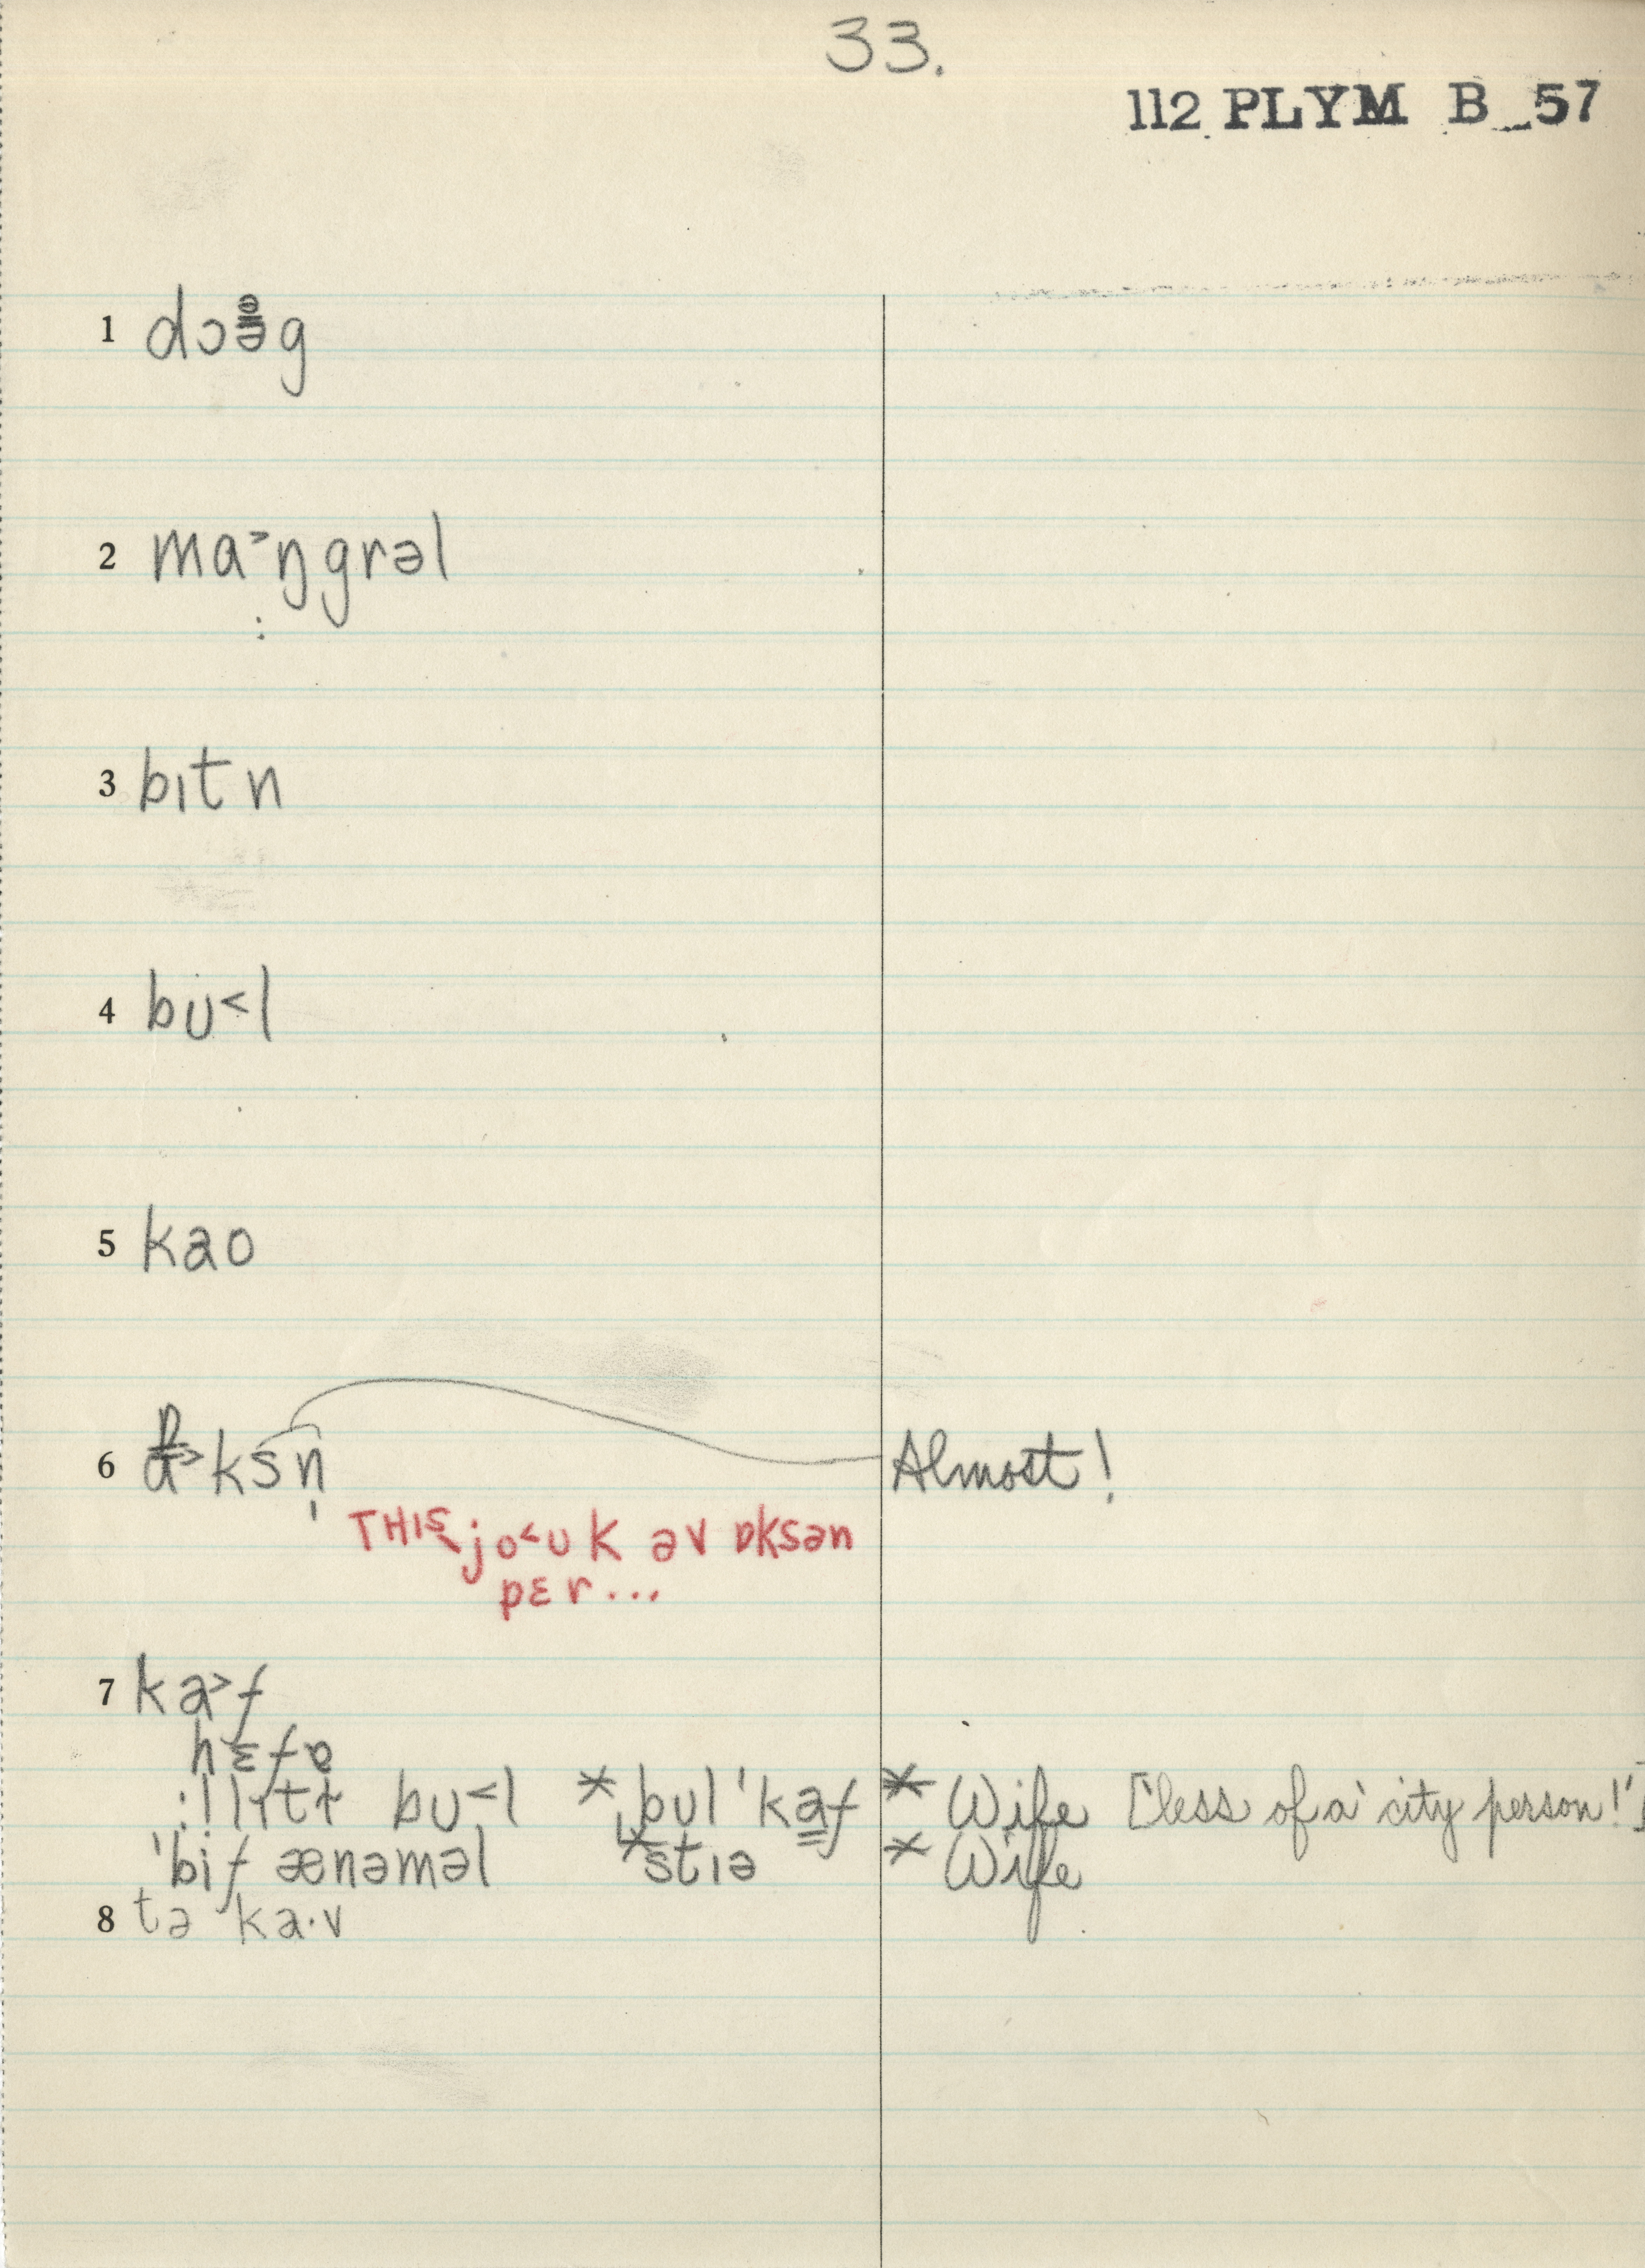 33.
112 PLYM B 57
1 dɔəg
2 ma˃ŋgrəl
:
3 bɪtn
4 bu˂l
5 kao
6 ɒ˃ksn̩ Almost!
THIS jo˂uk əv ɒksən
pɛr...
7 ka˃f
hɛfə
bu˂l *ˌbul ˈkaf * Wife [‘less of a’ city person!’]
ˈbif ænəməl *stɪə * Wife
8 tə ka·v